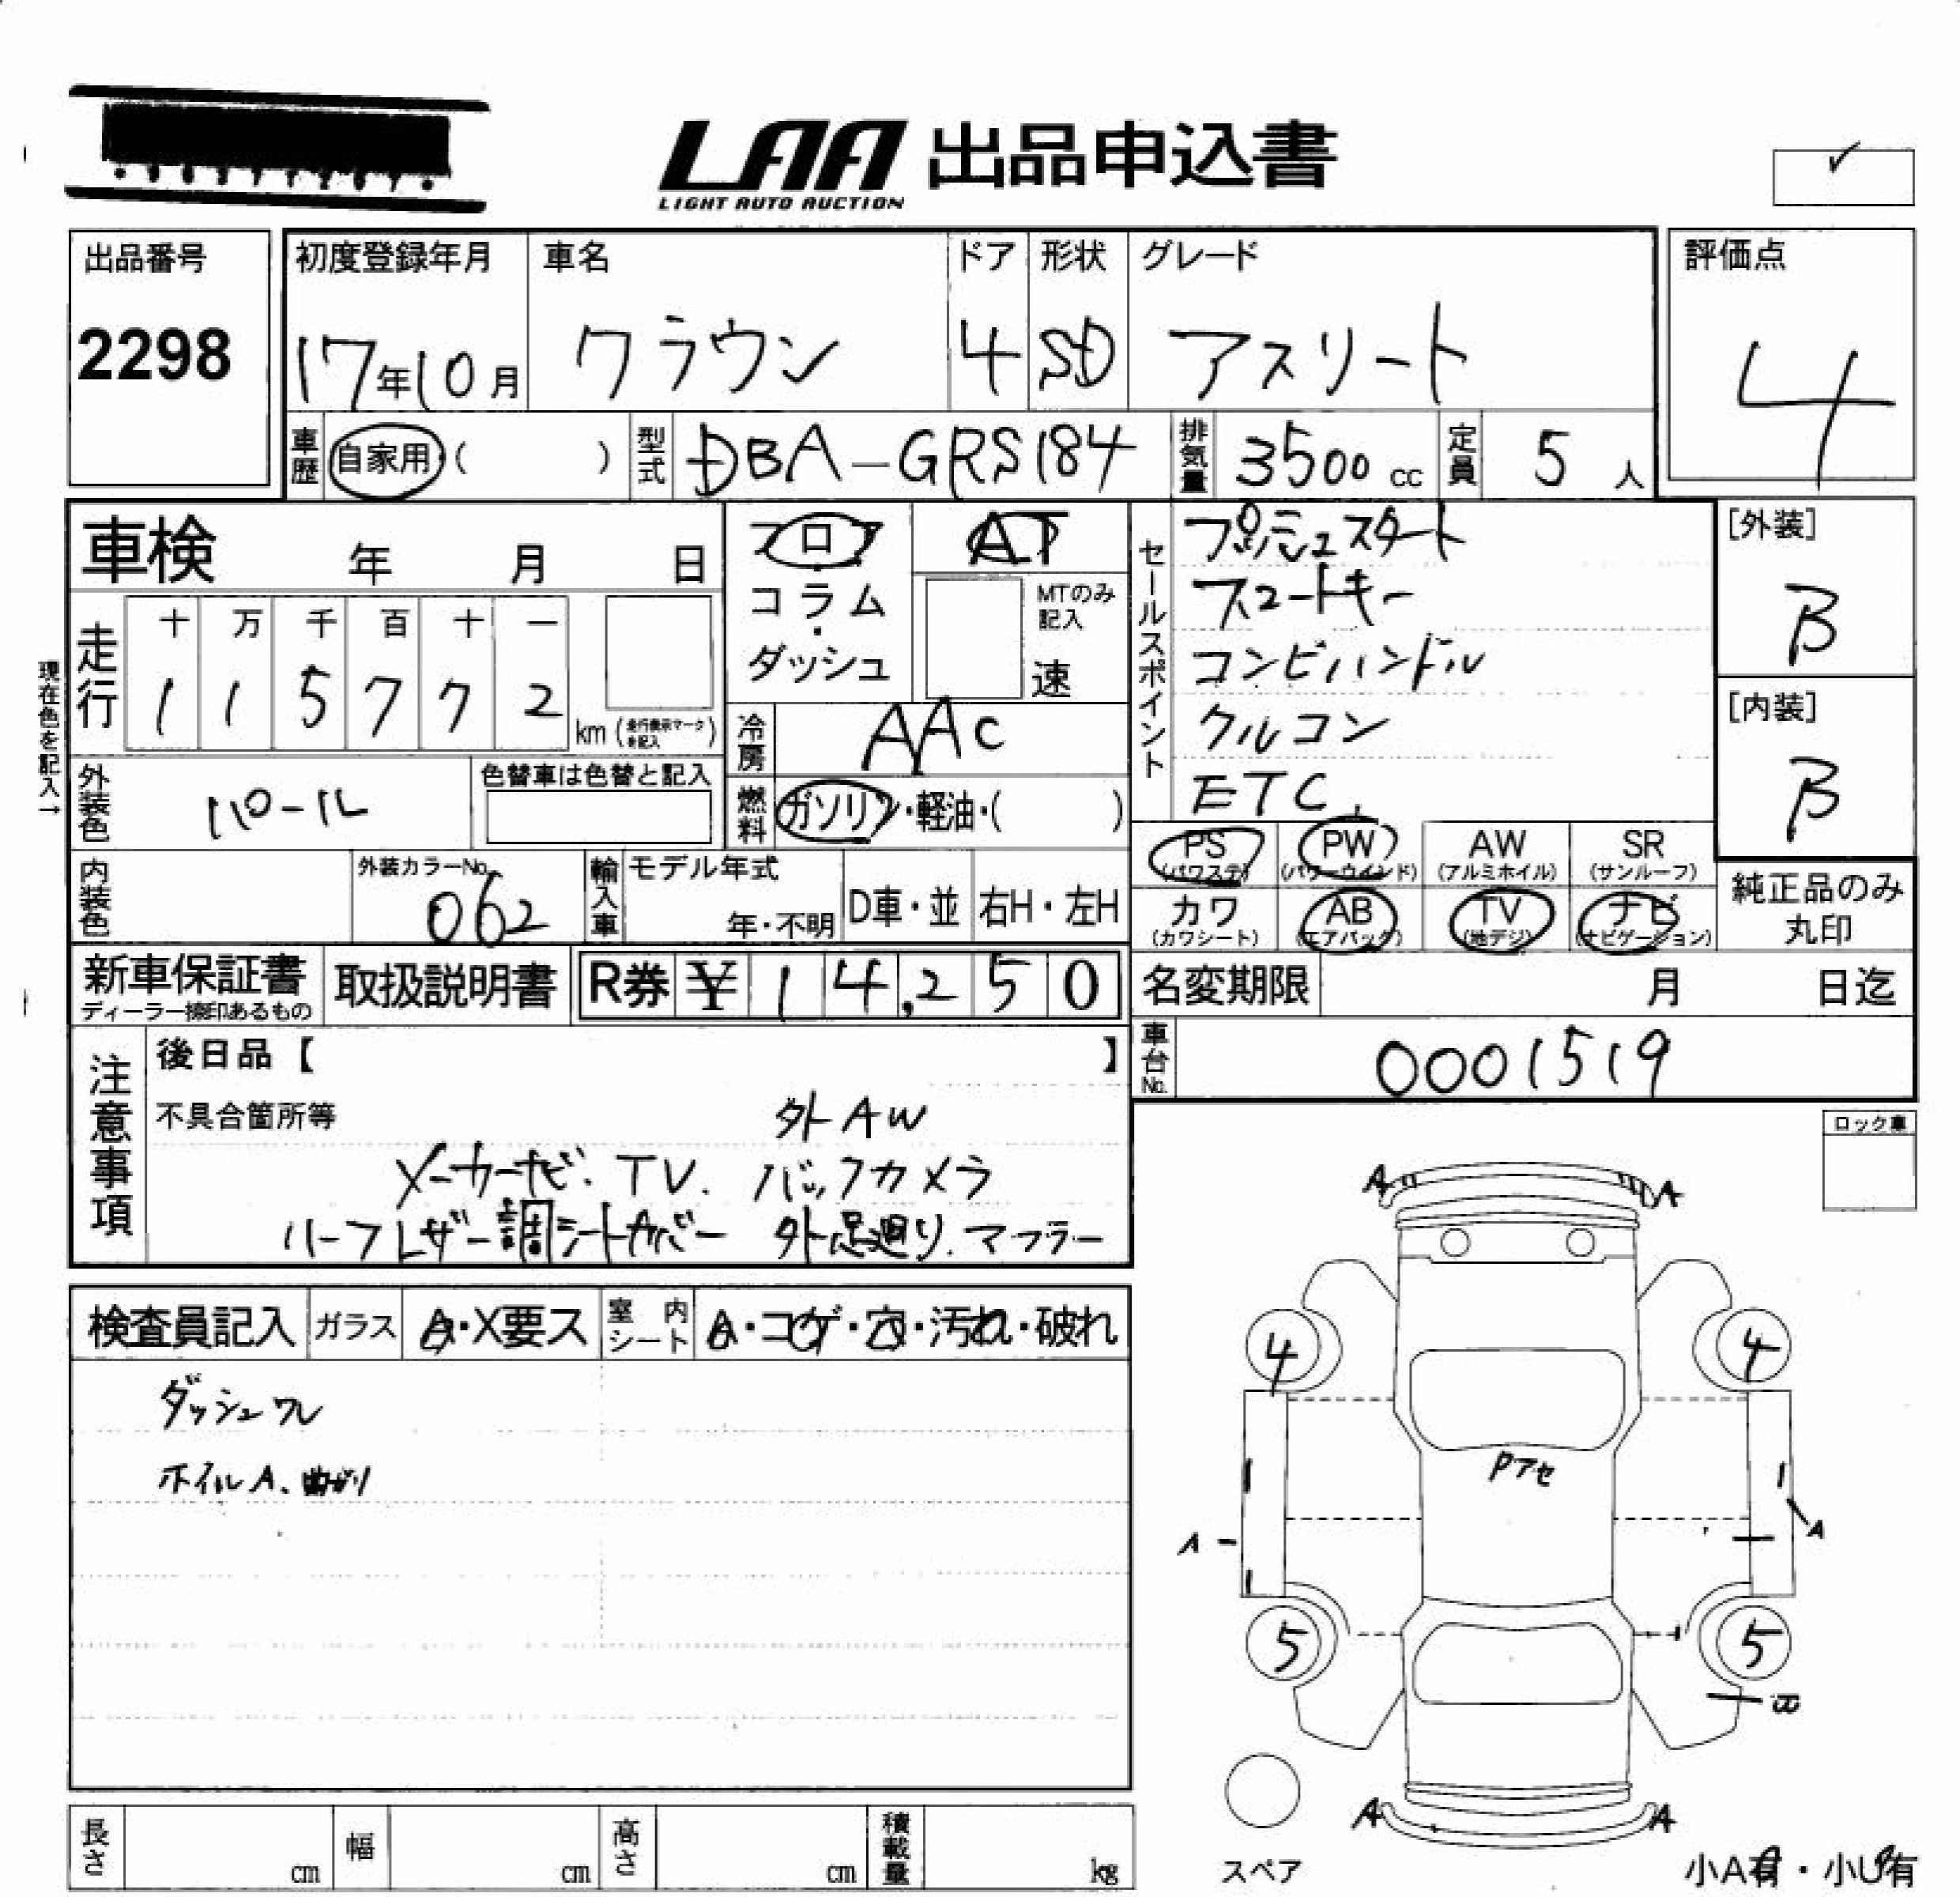 LAA 出品申込書
LIGHT AUTO AUCTION
出品番号
2298
初度登録年月
17年10月
車名
クラウン
ドア
4
形状
SD
グレード
アスリート
評価点
4
車歴 自家用・( )
型式 DBA-GRS184
排気量 3500 cc
定員 5 人
車検 年 月 日
現在色を記入→
走行
十 万 千 百 十 一
1 1 5 7 7 2
km(走行表示マークを記入)
フロア
コラム
・
ダッシュ
AT
MTのみ記入
速
冷房 AAC
燃料 ガソリン・軽油・( )
セールスポイント
プッシュスタート
スマートキー
コンビハンドル
クルコン
ETC.
[外装]
B
[内装]
B
外装色 パール
色替車は色替と記入
内装色
外装カラーNo.
062
輸入車
モデル年式
年・不明
D車・並
右H・左H
PS (パワステ)
PW (パワーウインド)
AW (アルミホイル)
SR (サンルーフ)
カワ (カワシート)
AB (エアバック)
TV (地デジ)
ナビ (ナビゲーション)
純正品のみ
丸印
新車保証書
ディーラー捺印あるもの
取扱説明書
R券 ¥ 14,250
名変期限 月 日迄
車台No. 0001519
注意事項
後日品【 】
不具合箇所等
外AW
メーカーナビ. TV. バックカメラ
ハーフレザー調シートカバー 外足廻り.マフラー
ロック車
検査員記入
ガラス A・X要ス
室内シート A・コゲ・穴・汚れ・破れ
ダッシュワレ
ホイルA、曲がり
A A
4 4
Pアセ
A A
5 5
B
A A
スペア
小A有・小U有
長さ cm
幅 cm
高さ cm
積載量 kg